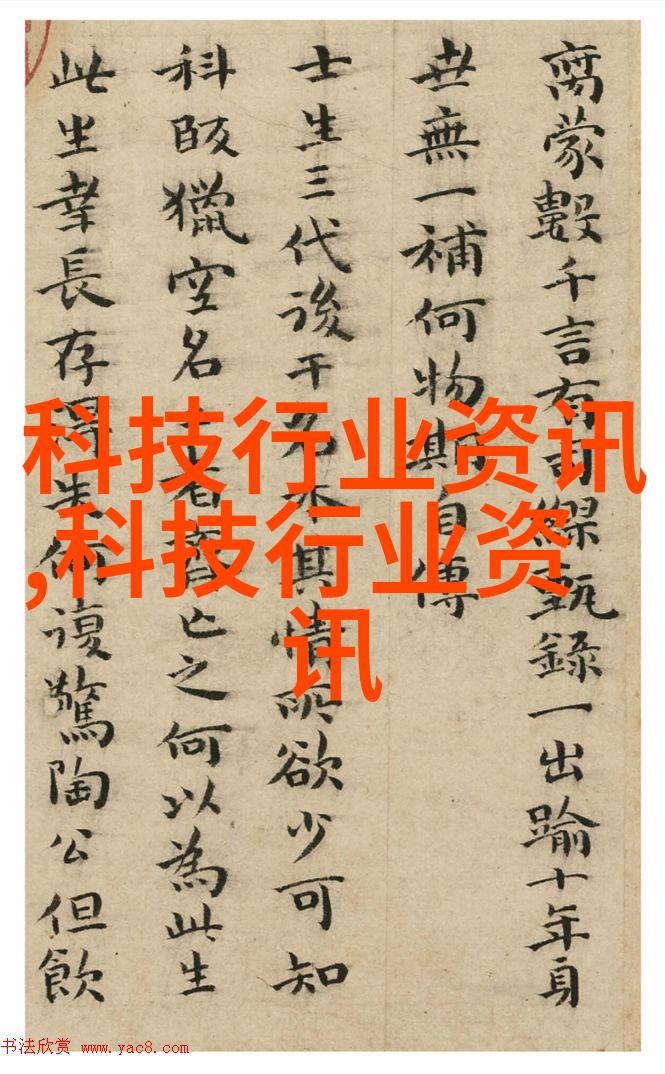 离蒙數千言有司繆甄錄一出踰十年身
世無一補何物斯自傳
士生三代後干名本其情所欲少可知
科段獵空名 者 亡之何以為此生
此生幸長存 何復驚陶公但飲
科技行业资讯
,科技行业资
讯
书法欣赏 www.yac8.com